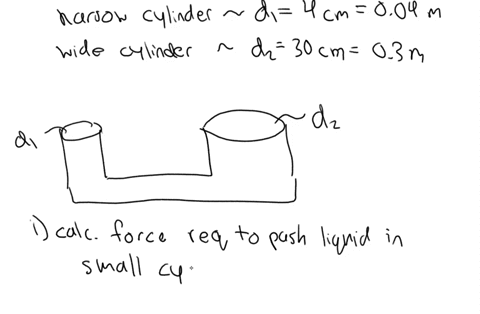 narrow cylinder ~ d₁ = 4 cm = 0.04 m
wide cylinder ~ d₂ = 30 cm = 0.3 m
d₁
d₂
i) calc. force req to push liquid in
small cy